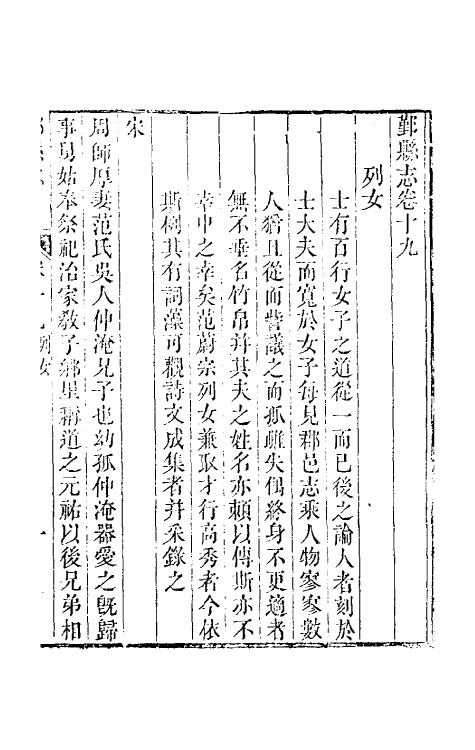 鄞縣志卷十九
列女
士有百行女子之道從一而已後之論人者刻於
士大夫而寬於女子每見郡邑志乘人物寥寥數
人猶且從而訾議之而孤雌失偶終身不更適者
無不垂名竹帛并其夫之姓名亦頼以傳斯亦不
幸中之幸矣范蔚宗列女兼取才行高秀者今依
斯例其有詞藻可觀詩文成集者并采錄之
宋
周師厚妻范氏吳人仲淹兄子也幼孤仲淹器愛之旣歸
事舅姑奉祭祀治家敎子鄉里稱道之元祐以後兄弟相
卷十九列女
一